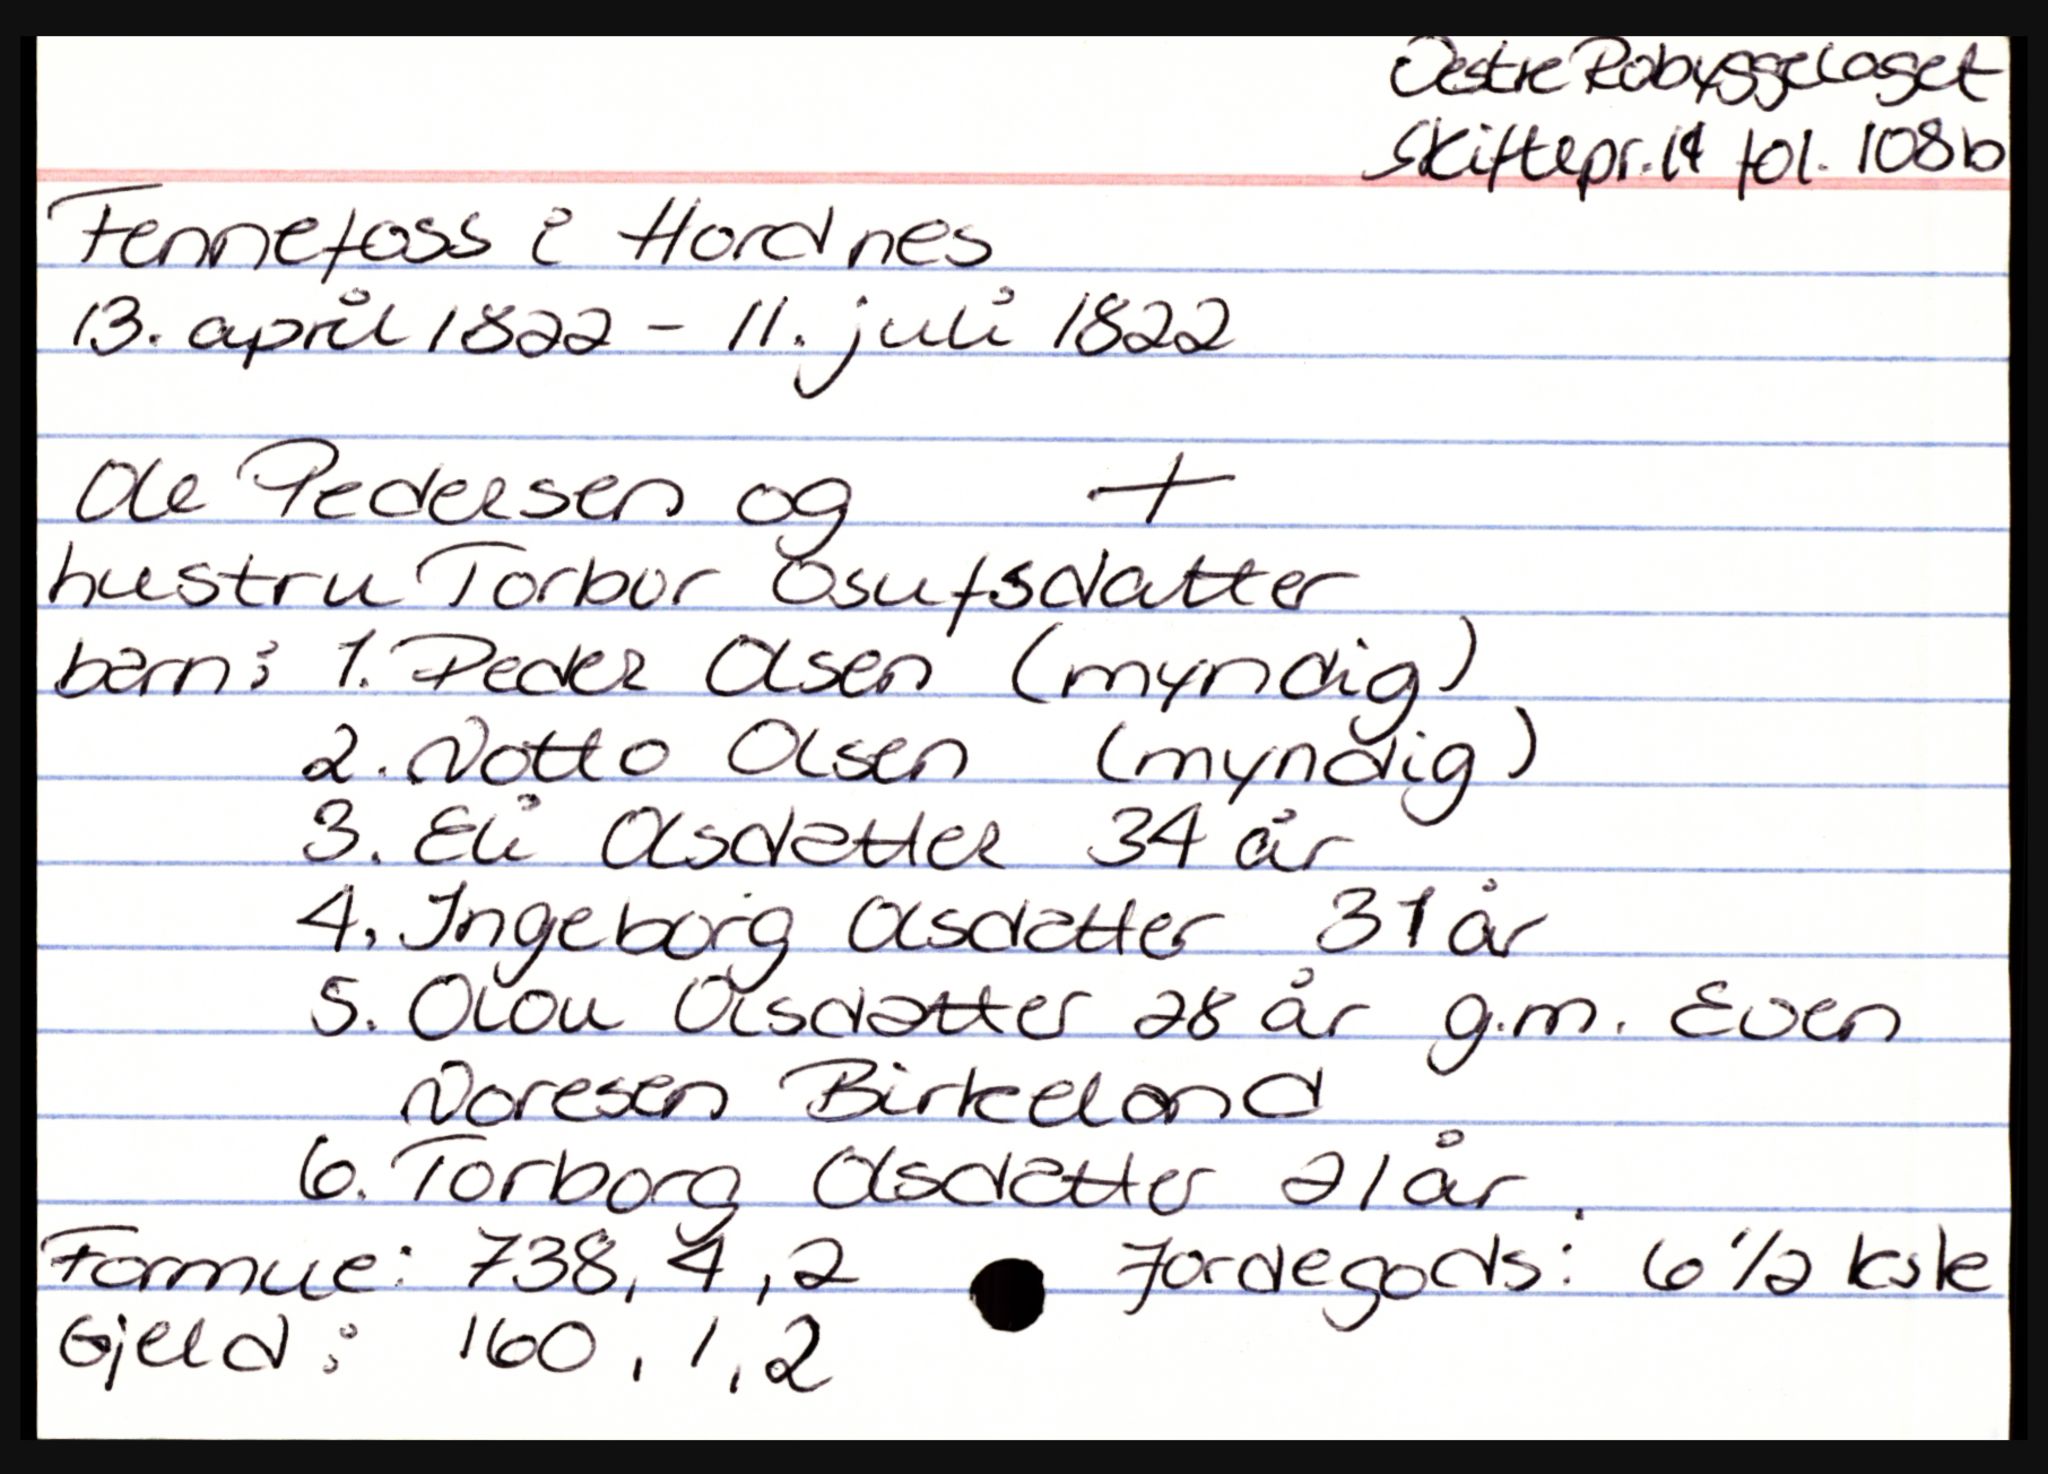 Vestre Robyggelaget
Skiftepr. 14 fol. 108b
Fennefoss i Hordnes
13. april 1822 - 11. juli 1822
Ole Pedersen og +
hustru Torbor Osufsdatter
barn: 1. Peder Olsen (myndig)
2. Notto Olsen (myndig)
3. Eli Olsdatter 34 år
4. Ingeborg Olsdatter 31 år
5. Olou Olsdatter 28 år g.m. Even
Noresen Birkeland
6. Torborg Olsdatter 21 år
Formue: 738, 4, 2 Jordegods: 6 1/2 ksk
Gjeld: 160, 1, 2